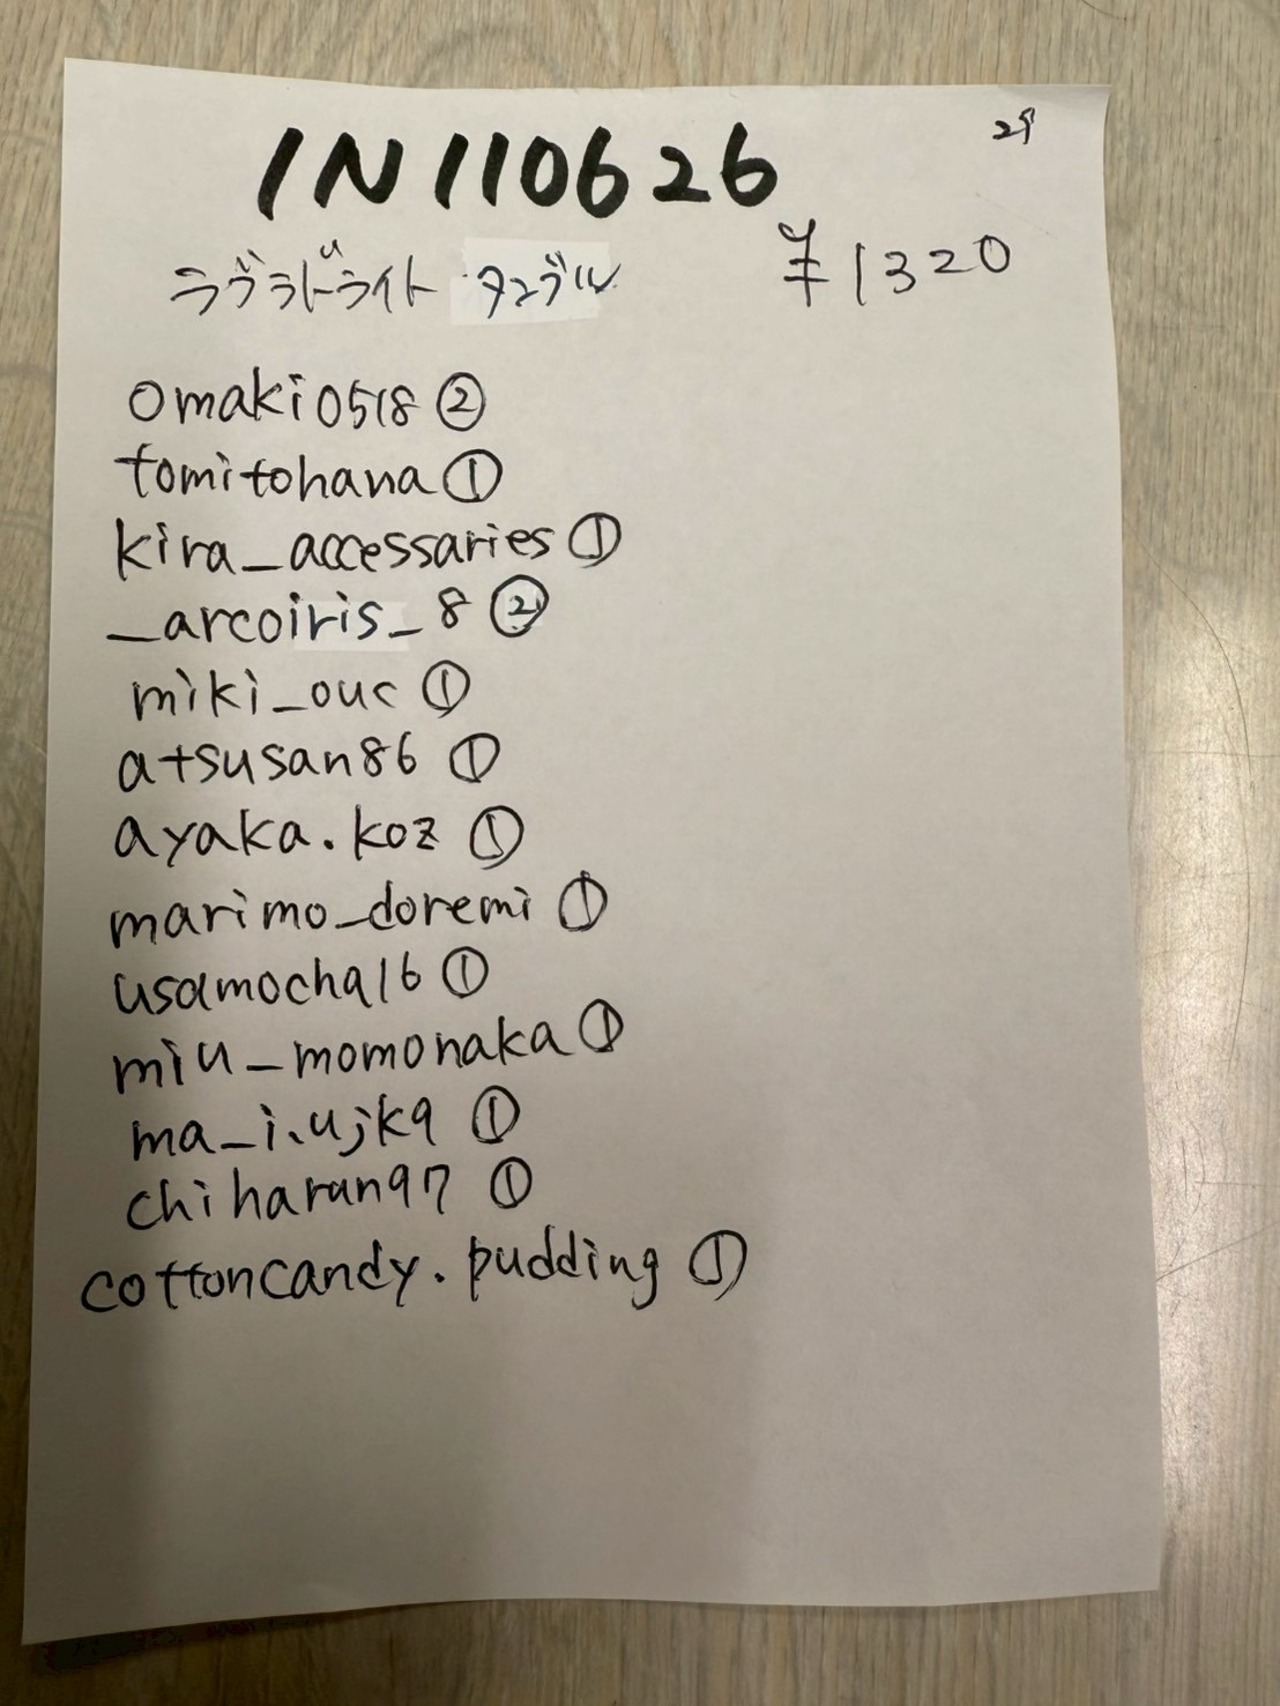 29
IN110626
ラヴラドライト タンブル ¥1320
omaki0518 ②
tomitohana ①
kira_accessaries ①
_arcoiris_8 ②
miki_ouc ①
atsusan86 ①
ayaka.koz ①
marimo_doremi ①
usamocha16 ①
miu_momonaka ①
ma_i.ujk9 ①
chiharun97 ①
cottoncandy.pudding ①